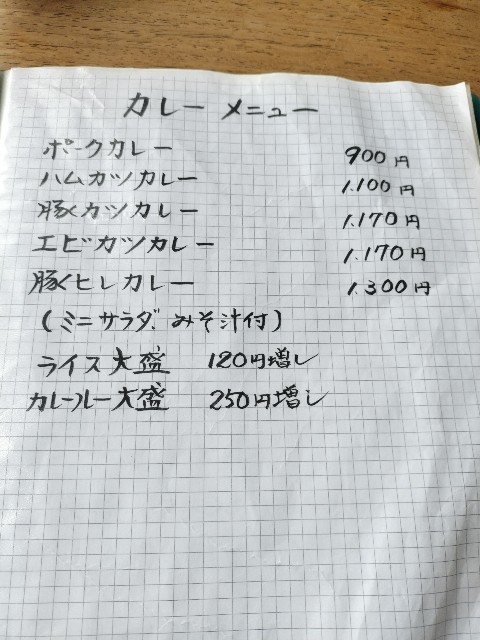 カレー メニュー
ポークカレー 900円
ハムカツカレー 1.100円
豚くカツカレー 1.170円
エビカツカレー 1.170円
豚くヒレカレー 1.300円
(ミニサラダ、みそ汁付)
ライス大盛 120円増し
カレールー大盛 250円増し